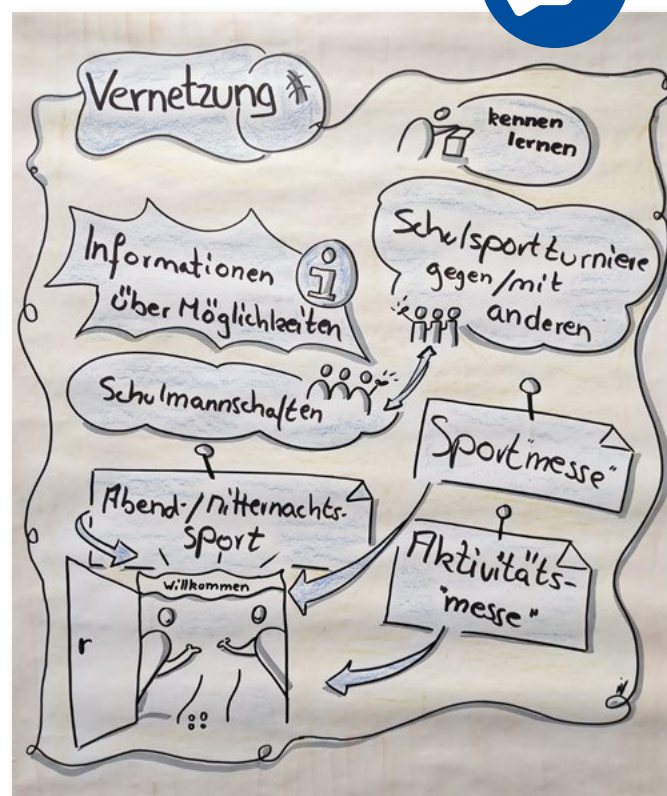 Vernetzung #
kennen
lernen
Informationen
über Möglichkeiten
i
Schulsportturniere
gegen/mit
anderen
Schulmannschaften
Sportmesse"
Abend-/Mitternachts-
sport
Aktivitäts-
"messe"
willkommen